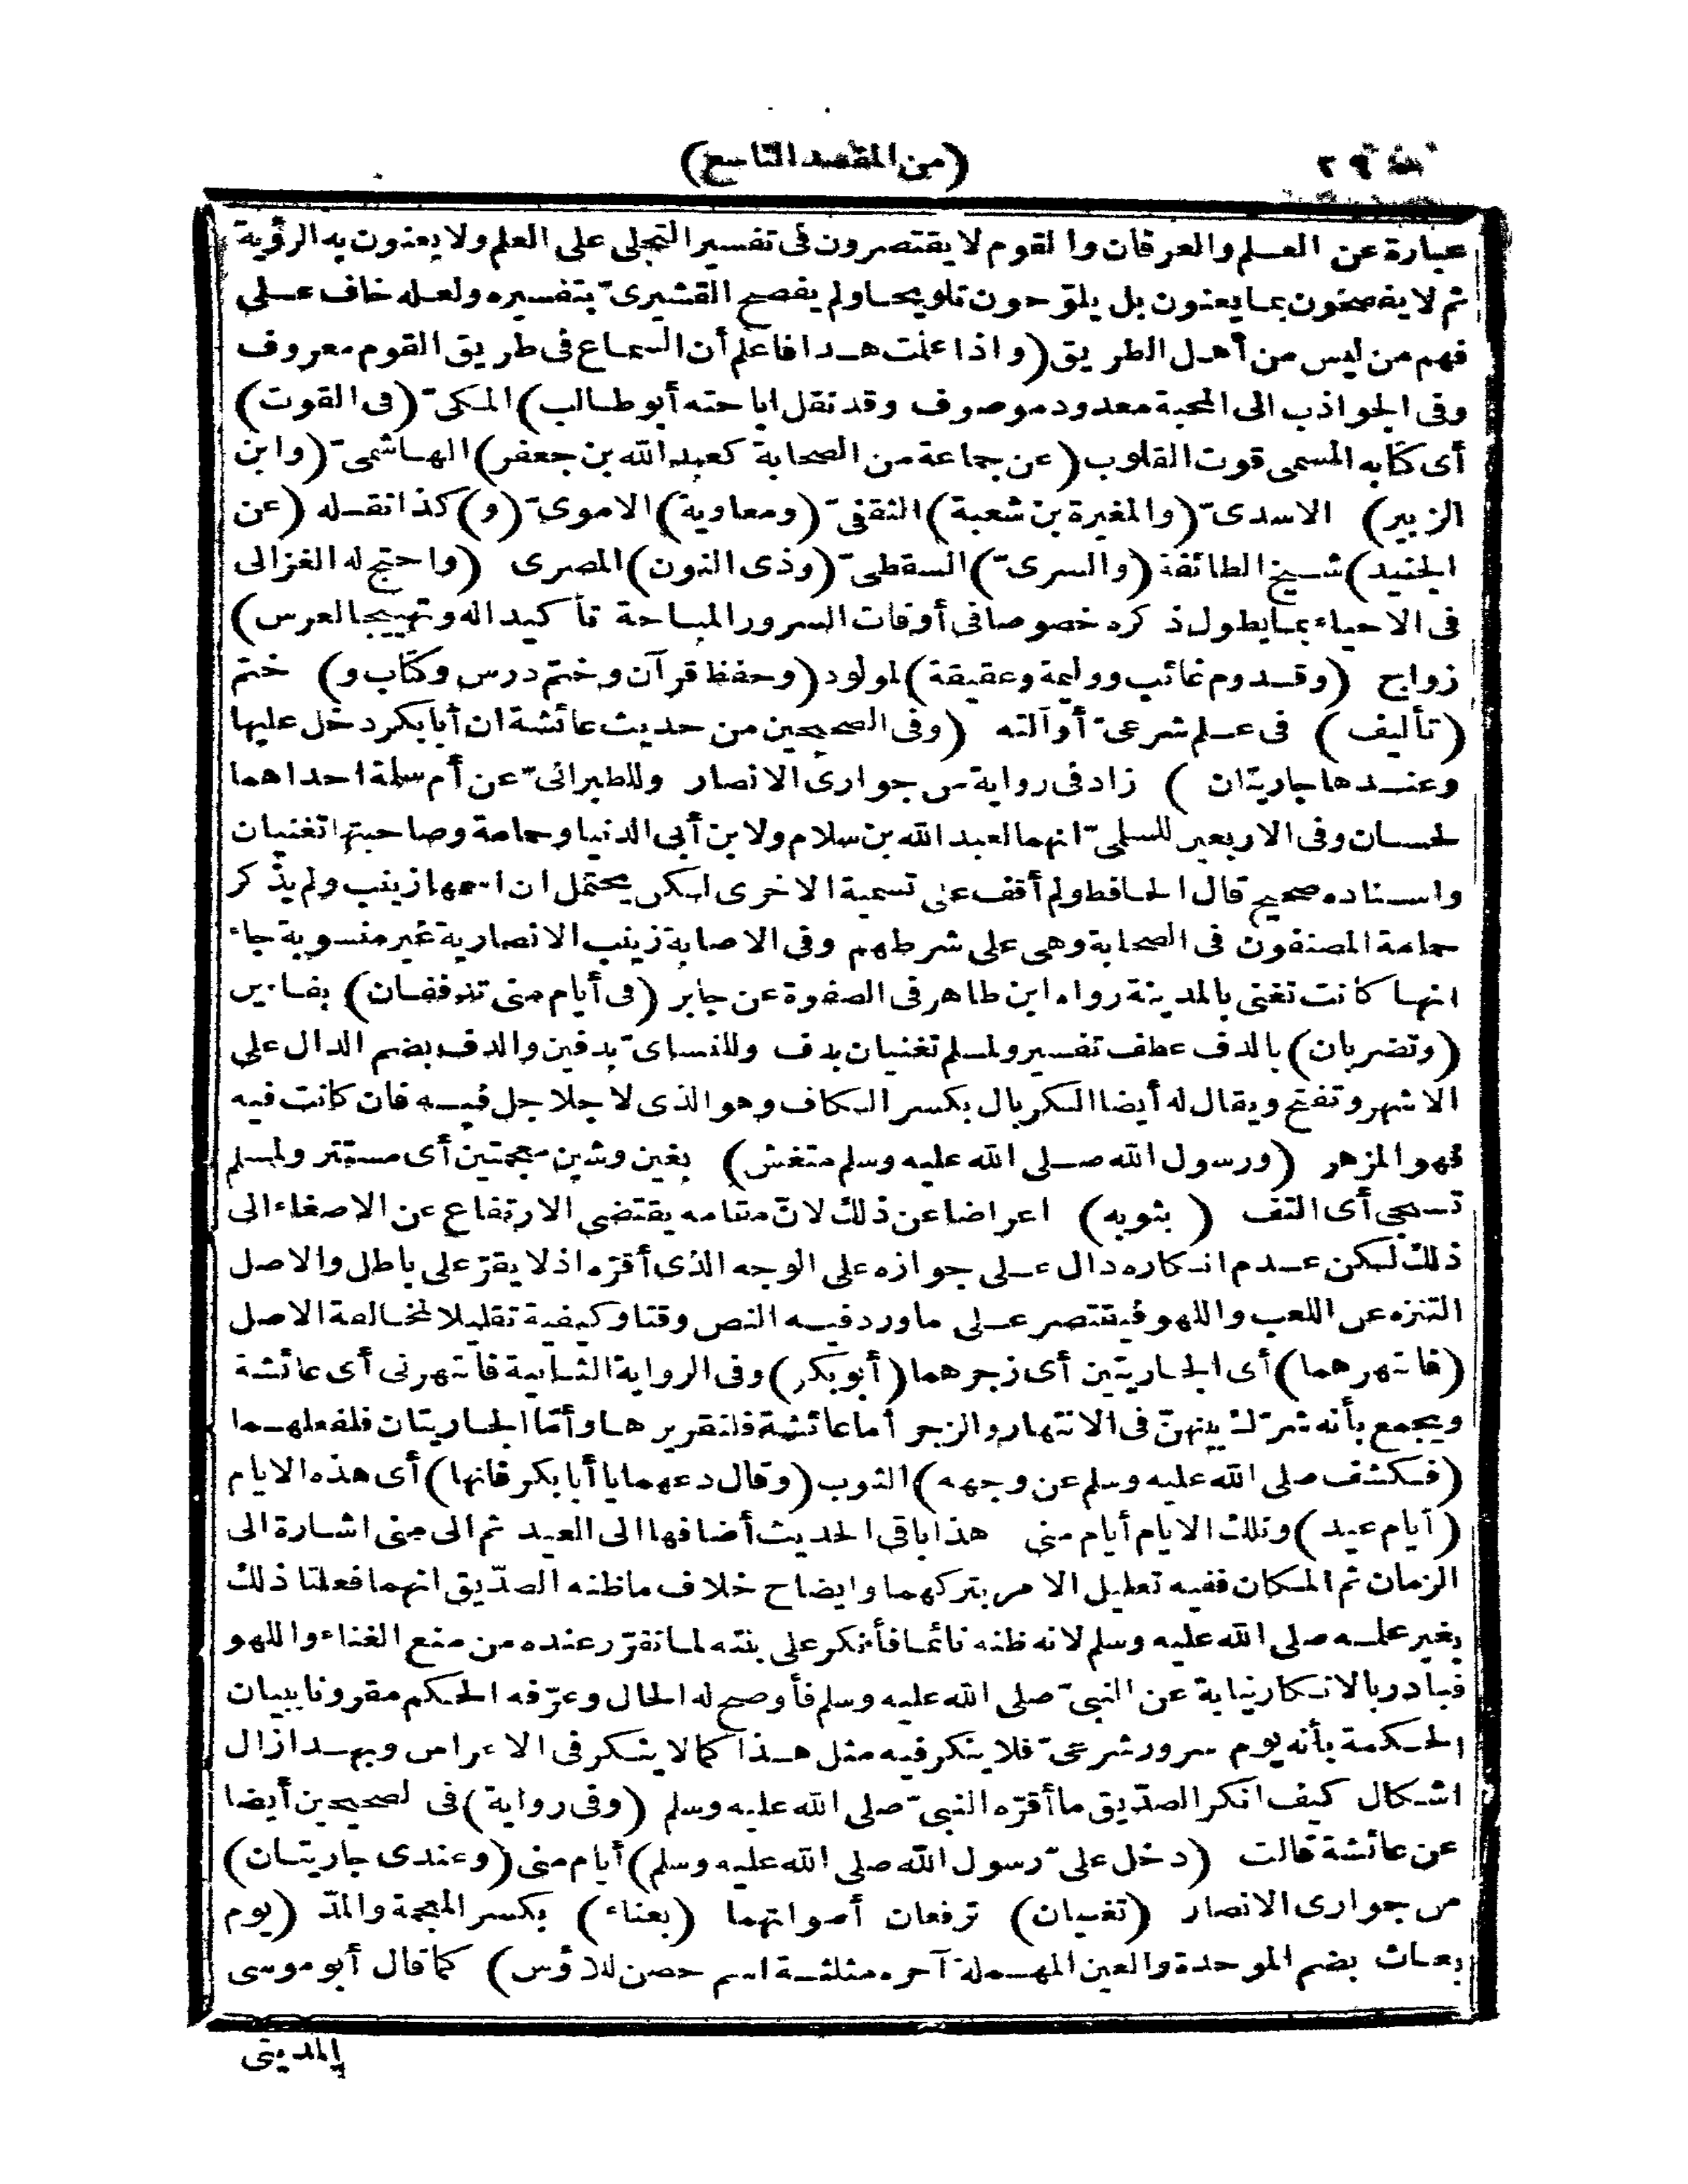 (من المقصد التاسع)
عبارة عن العلم والعرفان والقوم لا يقتصرون فى تفسير التجلى على العلم ولا يعنون به الرؤية
ثم لا يفصحون بما يعنون بل يلوّحون تلويحا ولم يفصح القشيرىّ بتفسيره ولعله خاف على
فهم من ليس من أهل الطريق (واذا علمت هذا فاعلم أن السماع فى طريق القوم معروف
وفى الجواذب الى المحبة معدود موصوف وقد نقل اباحته أبو طالب) المكىّ (فى القوت)
أى كتابه المسمى قوت القلوب (عن جماعة من الصحابة كعبد الله بن جعفر) الهاشمىّ (وابن
الزبير) الاسدىّ (والمغيرة بن شعبة) الثقفىّ (ومعاوية) الاموىّ (و) كذا نقله (عن
الجنيد) شيخ الطائفة (والسرىّ) السقطىّ (وذى النون) المصرى (واحتج له الغزالى
فى الاحياء بما يطول ذكره خصوصا فى أوقات السرور المباحة تأكيدا له وتهييجا لعرس)
زواج (وقدوم غائب ووليمة وعقيقة) لمولود (وحفظ قرآن وختم درس وكتاب و) ختم
(تأليف) فى علم شرعىّ أو آلته (وفى الصحيحين من حديث عائشة ان أبا بكر دخل عليها
وعندها جاريتان) زاد فى رواية من جوارى الانصار وللطبرانىّ عن أم سلمة احداهما
لحسان وفى الاربعين للسلمىّ انهما لعبد الله بن سلام ولابن أبى الدنيا وحمامة وصاحبتها تغنيان
واسناده صحيح قال الحافظ ولم أقف على تسمية الاخرى لكن يحتمل ان اسمها زينب ولم يذكر
حمامة المصنفون فى الصحابة وهى على شرطهم وفى الاصابة زينب الانصارية غير منسوبة جاء
انها كانت تغنى بالمدينة رواه ابن طاهر فى الصفوة عن جابر (فى أيام منى تدففان) بفاءين
(وتضربان) بالدف عطف تفسير ولمسلم تغنيان بدف وللنساىّ بدفين والدف بضم الدال على
الاشهر وتفتح ويقال له أيضا الكربال بكسر الكاف وهو الذى لا جلاجل فيه فان كانت فيه
فهو المزهر (ورسول الله صلى الله عليه وسلم متغش) بغين وشين معجمتين أى مستتر ولمسلم
تسجى أى التف (بثوبه) اعراضا عن ذلك لانّ مقامه يقتضى الارتفاع عن الاصغاء الى
ذلك لكن عدم انكاره دال على جوازه على الوجه الذى أقرّه اذ لا يقرّ على باطل والاصل
التنزه عن اللعب واللهو فيقتصر على ما ورد فيه النص وقتا وكيفية تقليلا لمخالفة الاصل
(فانتهرهما) أى الجاريتين أى زجرهما (أبو بكر) وفى الرواية الثانية فانتهرنى أى عائشة
ويجمع بأنه شرّك بينهنّ فى الانتهار والزجر أما عائشة فلتقريرها وأمّا الجاريتان فلفعلهما
(فكشف صلى الله عليه وسلم عن وجهه) الثوب (وقال دعهما يا أبا بكر فانها) أى هذه الايام
(أيام عيد) وتلك الايام أيام منى هذا باقى الحديث أضافها الى العيد ثم الى منى اشارة الى
الزمان ثم المكان ففيه تعليل الامر بتركهما وايضاح خلاف ما ظنه الصدّيق انهما فعلتا ذلك
بغير علمه صلى الله عليه وسلم لانه ظنه نائما فأنكر على بنته لما تقرّر عنده من منع الغناء واللهو
فبادر بالانكار نيابة عن النبىّ صلى الله عليه وسلم فأوضح له الحال وعرّفه الحكم مقرونا ببيان
الحكمة بأنه يوم سرور شرعىّ فلا ينكر فيه مثل هذا كما لا ينكر فى الاعراس وبهذا زال
اشكال كيف انكر الصدّيق ما أقرّه النبىّ صلى الله عليه وسلم (وفى رواية) فى لصحيحين أيضا
عن عائشة قالت (دخل علىّ رسول الله صلى الله عليه وسلم) أيام منى (وعندى جاريتان)
من جوارى الانصار (تغنيان) ترفعان أصواتهما (بغناء) بكسر المعجمة والمدّ (يوم
بعاث بضم الموحدة والعين المهملة آخره مثلثة اسم حصن للاوس) كما قال أبو موسى
المدينى